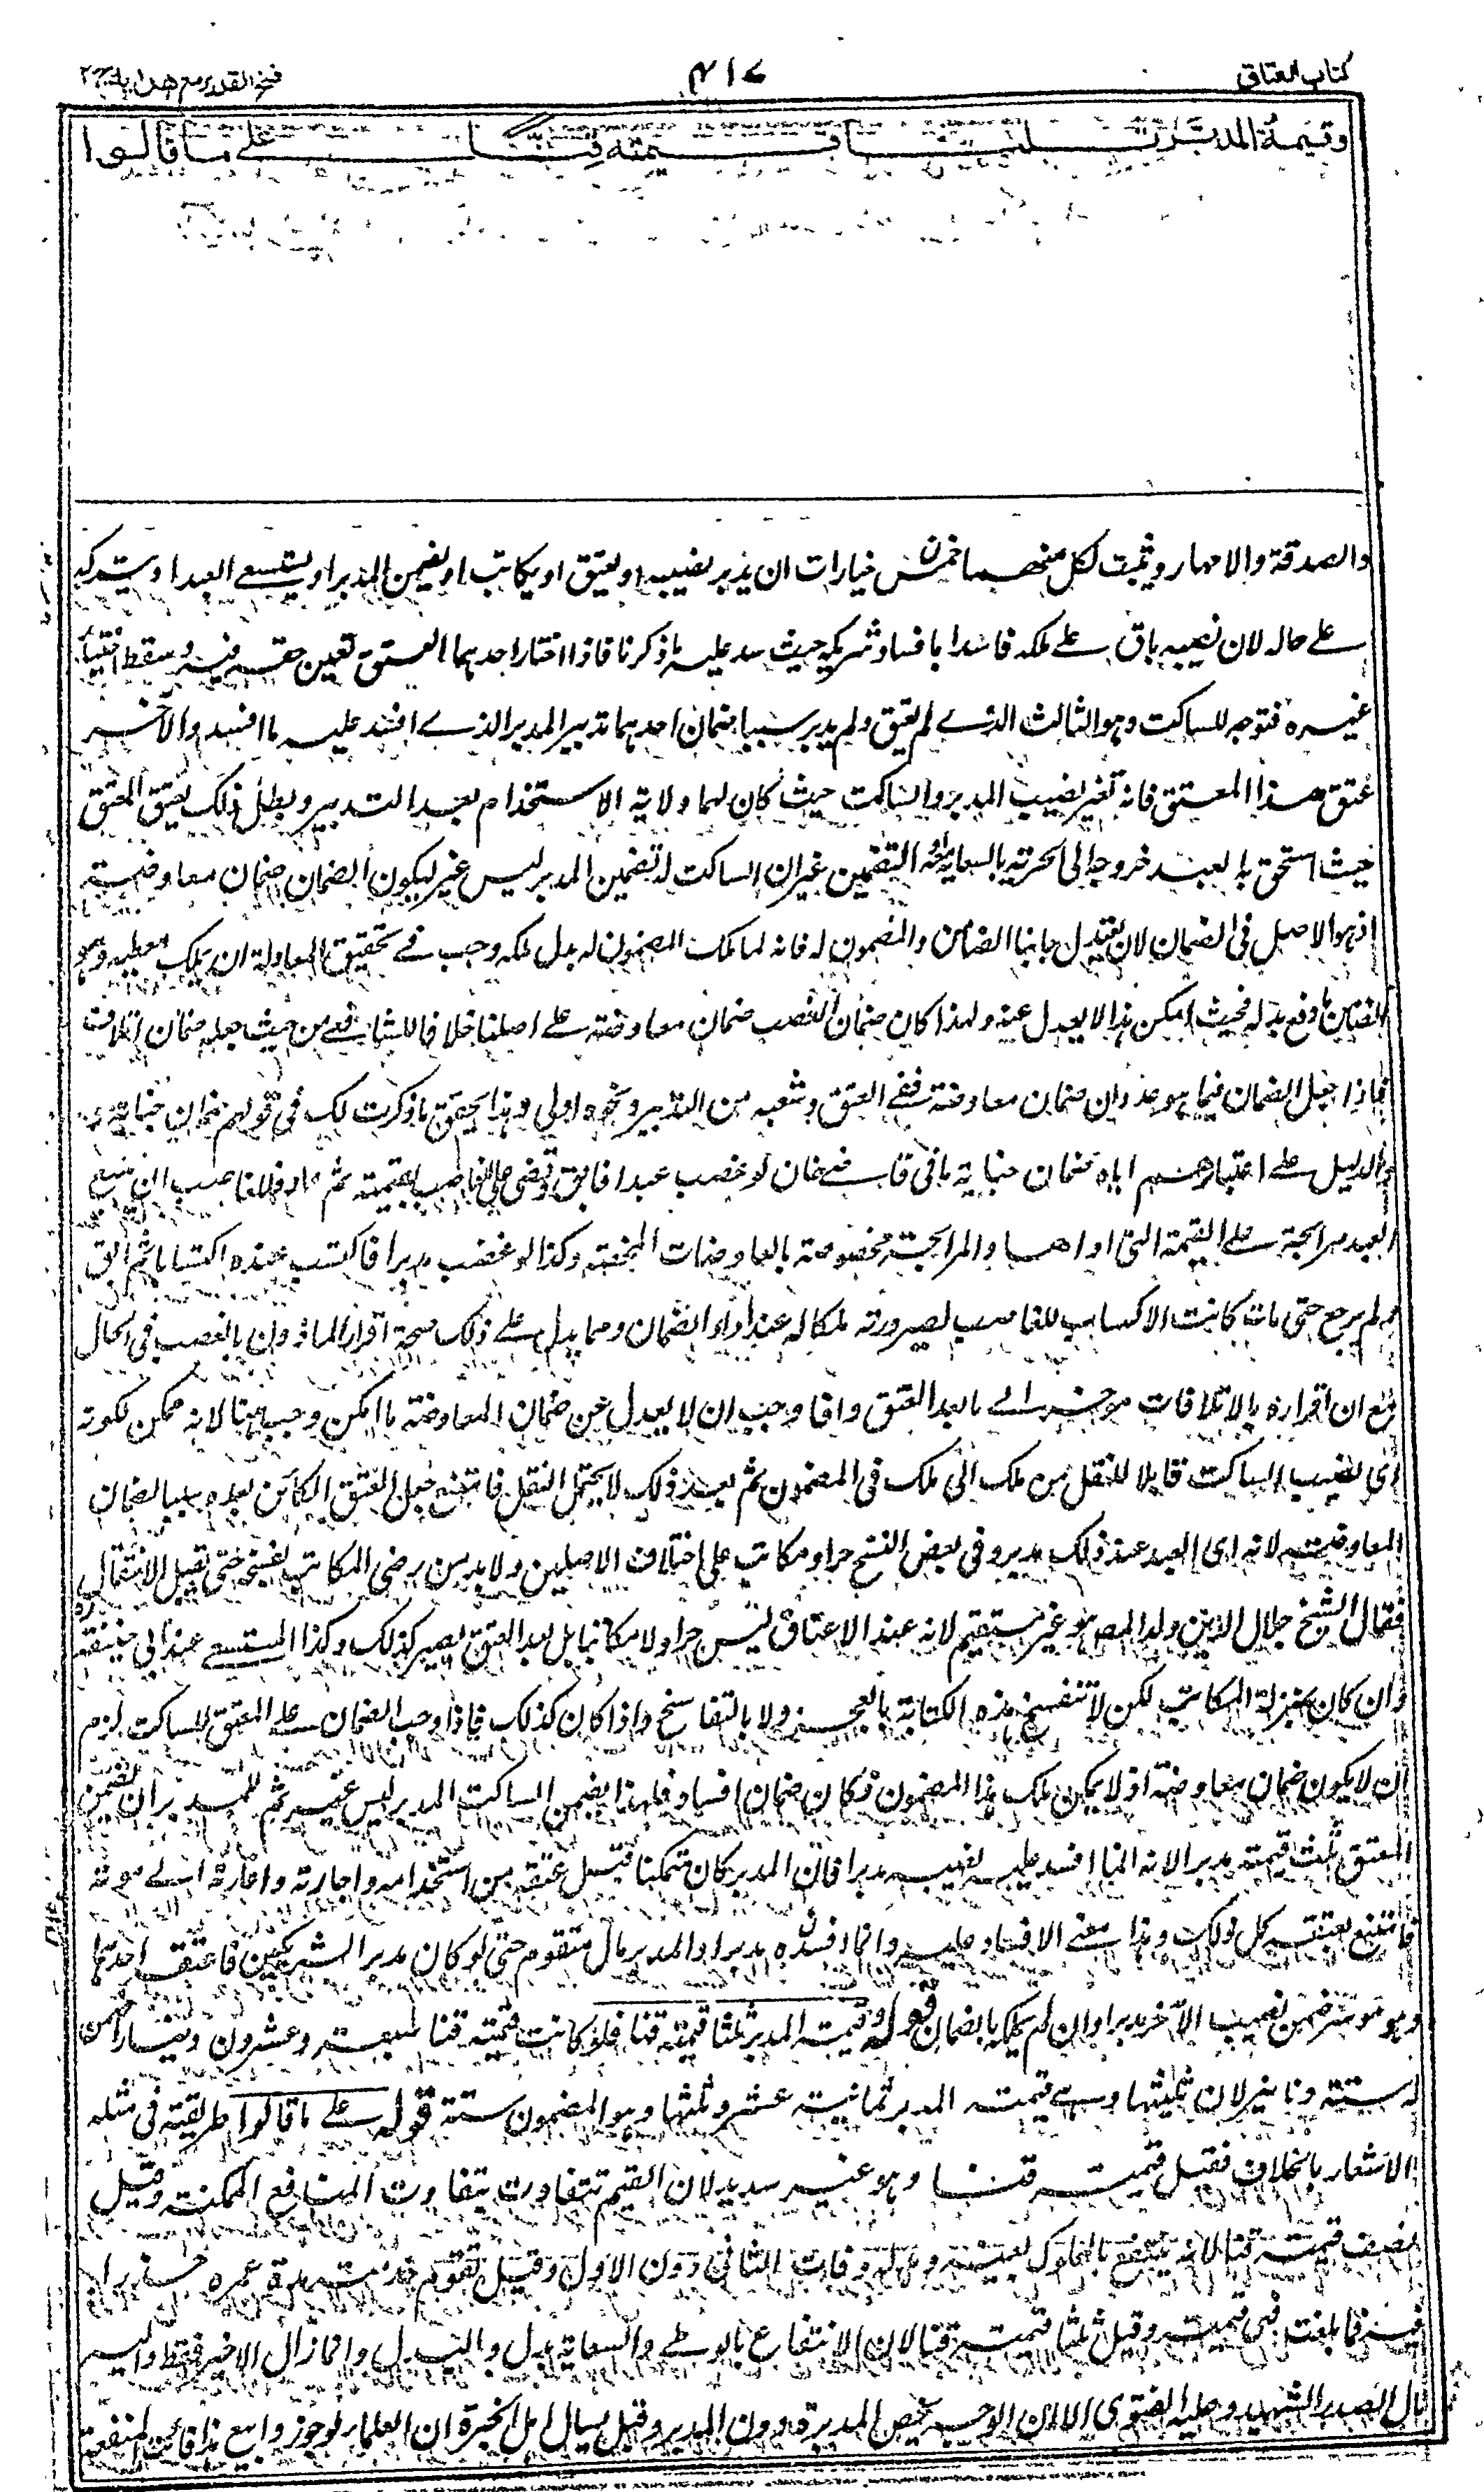 كتاب العتاق
٤١٧
فتح القدير مع هدايه ج٢
وقيمة المدبر ثلثا قيمته قنا على ما قالوا
والصدقة والامهار ويثبت لكل منهما خمس خيارات ان يدبر نصيبه او يعتق او يكاتب او يضمن المدبر او يستسعى العبد او يتركه
على حاله لان نصيبه باق على ملكه فاسدا بافساد شريكه حيث سد عليه ما ذكرنا فاذا اختار احدهما العتق تعين حقه فيه وسقط اختيار
غيره فتوجه للساكت وهو الثالث الذى لم يعتق ولم يدبر سببا ضمان احدهما تدبير المدبر الذى افسد عليه ما افسد والآخر
عتق هذا المعتق فانه تغير نصيب المدبر والساكت حيث كان لهما ولاية الاستخدام بعد التدبير وبطل ذلك بعتق المعتق
حيث استحق به العبد خروجا الى الحرية بالسعاية او التضمين غير ان الساكت له تضمين المدبر ليس غير ليكون الضمان ضمان معاوضة
اذ هو الاصل فى الضمان لان يعتدل جانبا الضامن والمضمون له فانه لما ملك المضمون له بدل ملكه وجب فى تحقيق المعادلة ان يملك معطيه وهو
الضامن ما دفع بدله فحيث امكن هذا لا يعدل عنه ولهذا كان ضمان الغصب ضمان معاوضة على اصلنا خلافا للشافعى من حيث جعله ضمان اتلاف
فاذا جعل الضمان فيما هو عدوان ضمان معاوضة ففى العتق وشعبه من التدبير ونحوه اولى وهذا يحقق ما ذكرت لك فى قولهم ضمان جناية
والدليل على اعتبارهم اياه ضمان جناية ما فى قاضيخان لو غصب عبدا فابق وقضى على الغاصب بقيمته ثم عاد فللغاصب ان يبيع
العبد مرابحة على القيمة التى اداها والمرابحة مخصوصة بالمعاوضات المحضة وكذا لو غصب مدبرا فاكتسب عنده اكتسابا ثم ابق
ولم يرجع حتى مات كانت الاكساب للغاصب لصيرورته ملكا له عند اداء الضمان ومما يدل على ذلك صحة اقرار الماذون بالغصب فى الحال
مع ان اقراره بالاتلافات موخر الى ما بعد العتق واذا وجب ان لا يعدل عن ضمان المعاوضة ما امكن وجب ههنا لانه ممكن لكونه
اى نصيب الساكت قابلا للنقل من ملك الى ملك فى المضمون ثم بعد ذلك لا يحتمل النقل فامتنع جعل العتق الكائن بعده سببا لضمان
المعاوضة لانه اى العبد عند ذلك مدبر وفى بعض النسخ حر او مكاتب على اختلاف الاصلين ولا بد من رضى المكاتب بفسخه حتى يقبل الانتقال
فقال الشيخ جلال الدين ولد المص هو غير مستقيم لانه عند الاعتاق ليس حرا ولا مكاتبا بل بعد العتق يصير كذلك وكذا المستسعى عند ابى حنيفة
وان كان بمنزلة المكاتب لكن لا تنفسخ هذه الكتابة بالعجز ولا بالتفاسخ واذا كان كذلك فاذا وجب الضمان على المعتق للساكت لزم
ان لا يكون ضمان معاوضة اذ لا يمكن ملك هذا المضمون فكان ضمان افساد فلهذا يضمن الساكت المدبر ليس غير ثم للمدبر ان يضمن
المعتق ثلث قيمته مدبرا لانه انما افسد عليه نصيبه مدبرا فان المدبر كان متمكنا قبل عتقه من استخدامه واجارته واعارته الى موته
فامتنع بعتقه كل ذلك وهذا معنى الافساد عليه وانما افسده مدبرا والمدبر مال متقوم حتى لو كان مدبر الشريكين فاعتق احدهما
وهو موسر ضمن نصيب الآخر مدبرا وان لم يملكه بالضمان قوله وقيمة المدبر ثلثا قيمته قنا فلو كانت قيمته قنا سبعة وعشرون دينارا ضمن
له ستة دنانير لان ثلثيها وهى قيمته المدبر ثمانية عشر وثلثها وهو المضمون ستة قوله على ما قالوا طريقة فى مثله
الاشعار بالخلاف فقيل قيمته قنا وهو غير سديد لان القيم تتفاوت بتفاوت المنافع الممكنة وقيل
نصف قيمته قنا لانه ينتفع بالمملوك بعينه وبدله وفات الثانى دون الاول وقيل تقوم خدمته مدة عمره حزرا
فيه فما بلغت فهى قيمته وقيل ثلثا قيمته قنا لان الانتفاع بالوطى والسعاية بدل والبدل وانما زال الاخير فقط واليه
مال الصدر الشهيد وعليه الفتوى الا ان الوجه يخص المدبرة دون المدبر وقيل يسال اهل الخبرة ان العلماء لو جوزوا بيع هذا فائت المنفعة